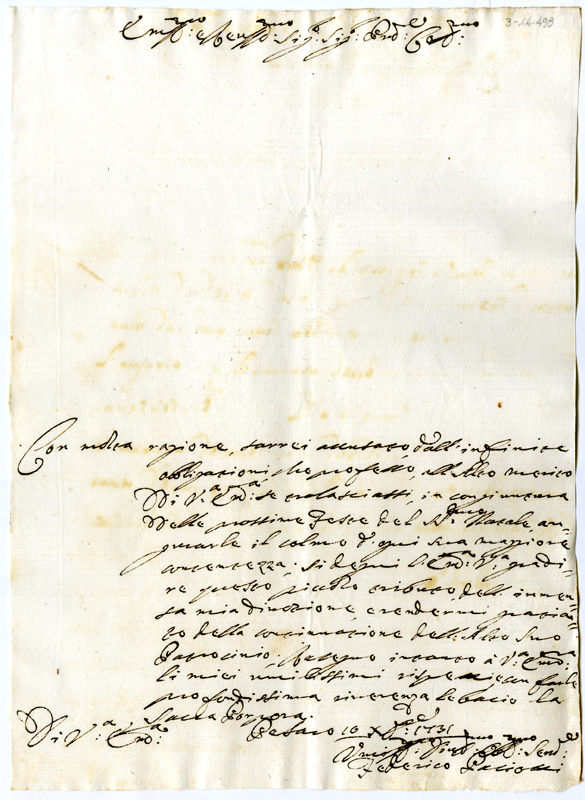 3-14-498
Em:mo e Reu:mo Sig:r Sig:r Prõn: Col:mo
Con molta ragione, sarrei accusato dall'infinite
obbligazioni, che professo, all'Alto merito
Di V.a Em:a se tralasciassi, in congiuntura
Delle prossime Feste del SS:mo Natale au=
gurarle il colmo d'ogni sua maggiore
contentezza; si degni l'Em:a V.a gradi=
re questo piccolo tributo dell'immen=
sa mia divozione, e rendermi grazia=
to della continuazione dell'Alto Suo
Patrocinio, rassegno intanto à V.a Em:a
li miei umilissimi rispetti, e con farle
profondissima riverenza le bacio la
Sacra Porpora.
Di V.a Em:a
Pesaro 10 Xbre: 1731
Um:mo Obb:mo Serd:e
Federico